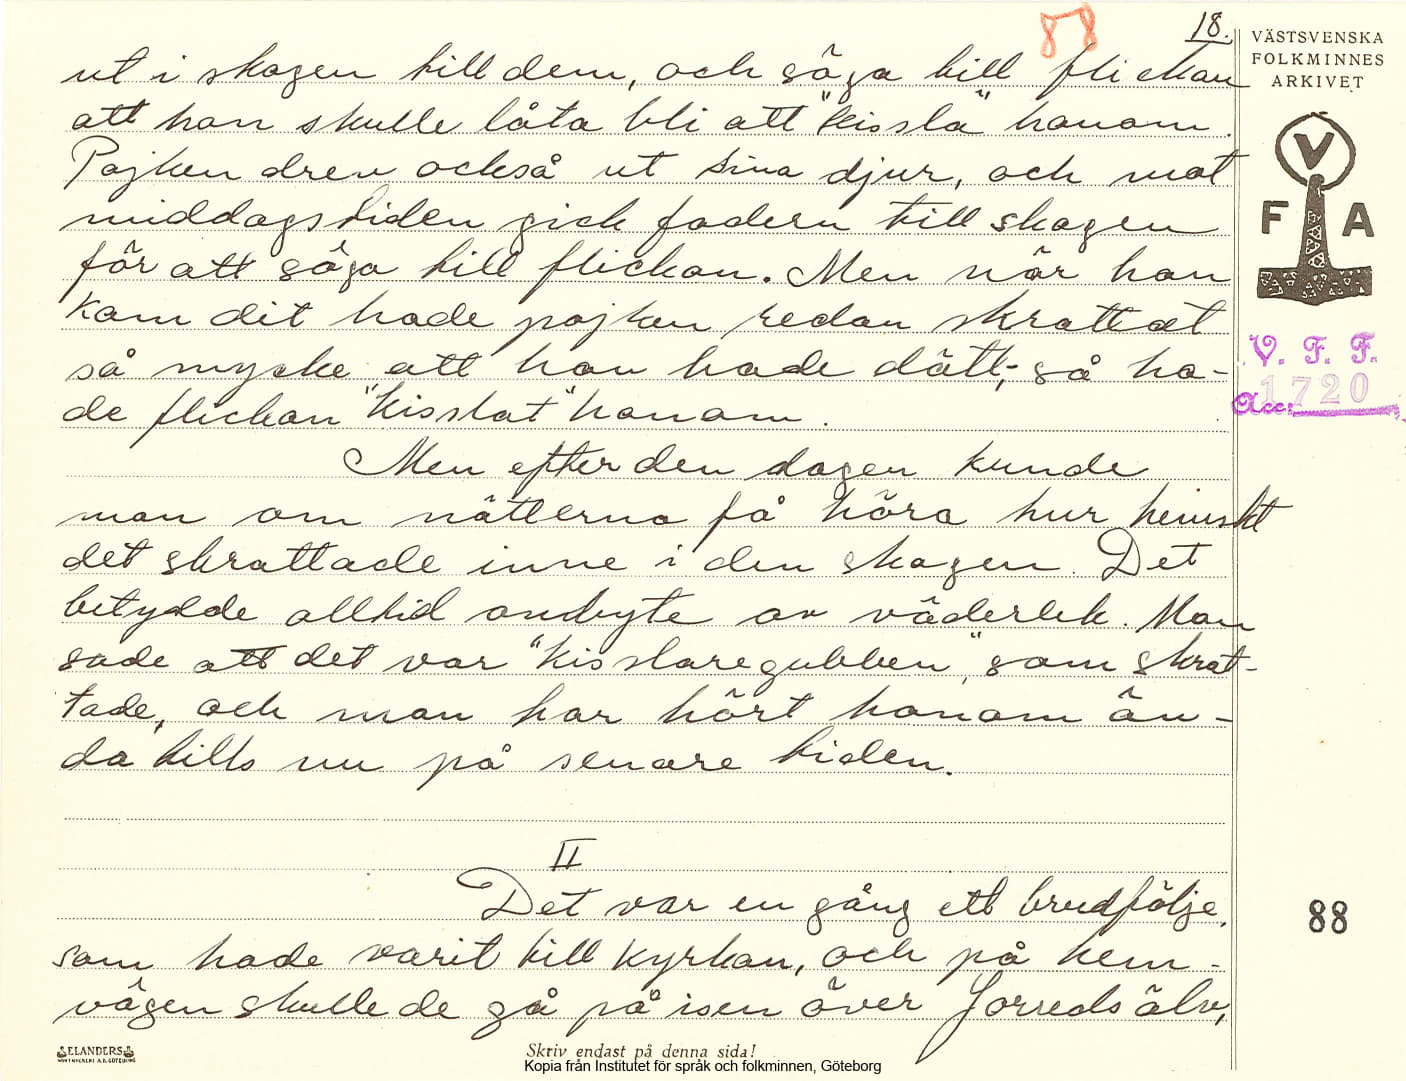 88
18.
VÄSTSVENSKA
FOLKMINNES
ARKIVET
V
F A
V. F. F.
Acc: 1720
ut i skogen till dem, och säga till flickan
att hon skulle låta bli att "kissla" honom.
Pojken drev också ut sina djur, och mot
middagstiden gick fadern till skogen
för att säga till flickan. Men när han
kom dit hade pojken redan skrattat
så mycke att han hade dått,- så ha-
de flickan "kisslat" honom.
Men efter den dagen kunde
man om nätterna få höra hur hemskt
det skrattade inne i den skogen. Det
betydde alltid ombyte av väderlek. Man
sade att det var "kisslaregubben", som skrat-
tade, och man har hört honom än-
da tills nu på senare tiden.
II
Det var en gång ett brudfölje,
som hade varit till kyrkan, och på hem-
vägen skulle de gå på isen över Jorreds älv,
88
ELANDERS
Skriv endast på denna sida!
Kopia från Institutet för språk och folkminnen, Göteborg